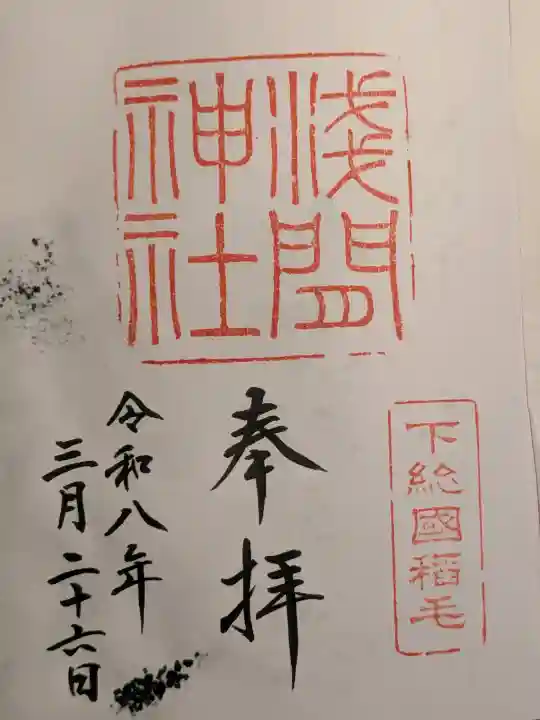 浅間
神社
下総國稲毛
奉拝
令和八年
三月二十六日